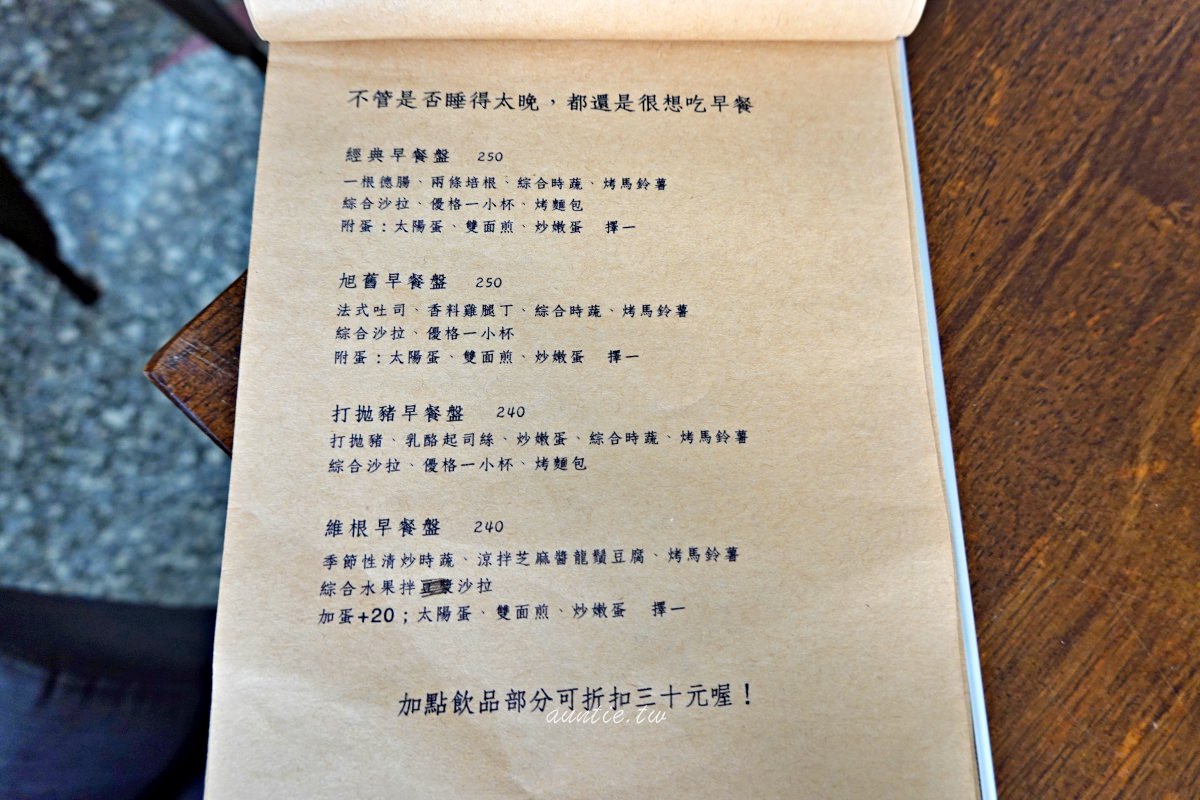 不管是否睡得太晚，都還是很想吃早餐
經典早餐盤 250
一根德腸、兩條培根、綜合時蔬、烤馬鈴薯
綜合沙拉、優格一小杯、烤麵包
附蛋：太陽蛋、雙面煎、炒嫩蛋 擇一
旭舊早餐盤 250
法式吐司、香料雞腿丁、綜合時蔬、烤馬鈴薯
綜合沙拉、優格一小杯
附蛋：太陽蛋、雙面煎、炒嫩蛋 擇一
打拋豬早餐盤 240
打拋豬、乳酪起司絲、炒嫩蛋、綜合時蔬、烤馬鈴薯
綜合沙拉、優格一小杯、烤麵包
維根早餐盤 240
季節性清炒時蔬、涼拌芝麻醬龍鬚豆腐、烤馬鈴薯
綜合水果拌沙拉
加蛋+20；太陽蛋、雙面煎、炒嫩蛋 擇一
加點飲品部分可折扣三十元喔！
auntie.tw